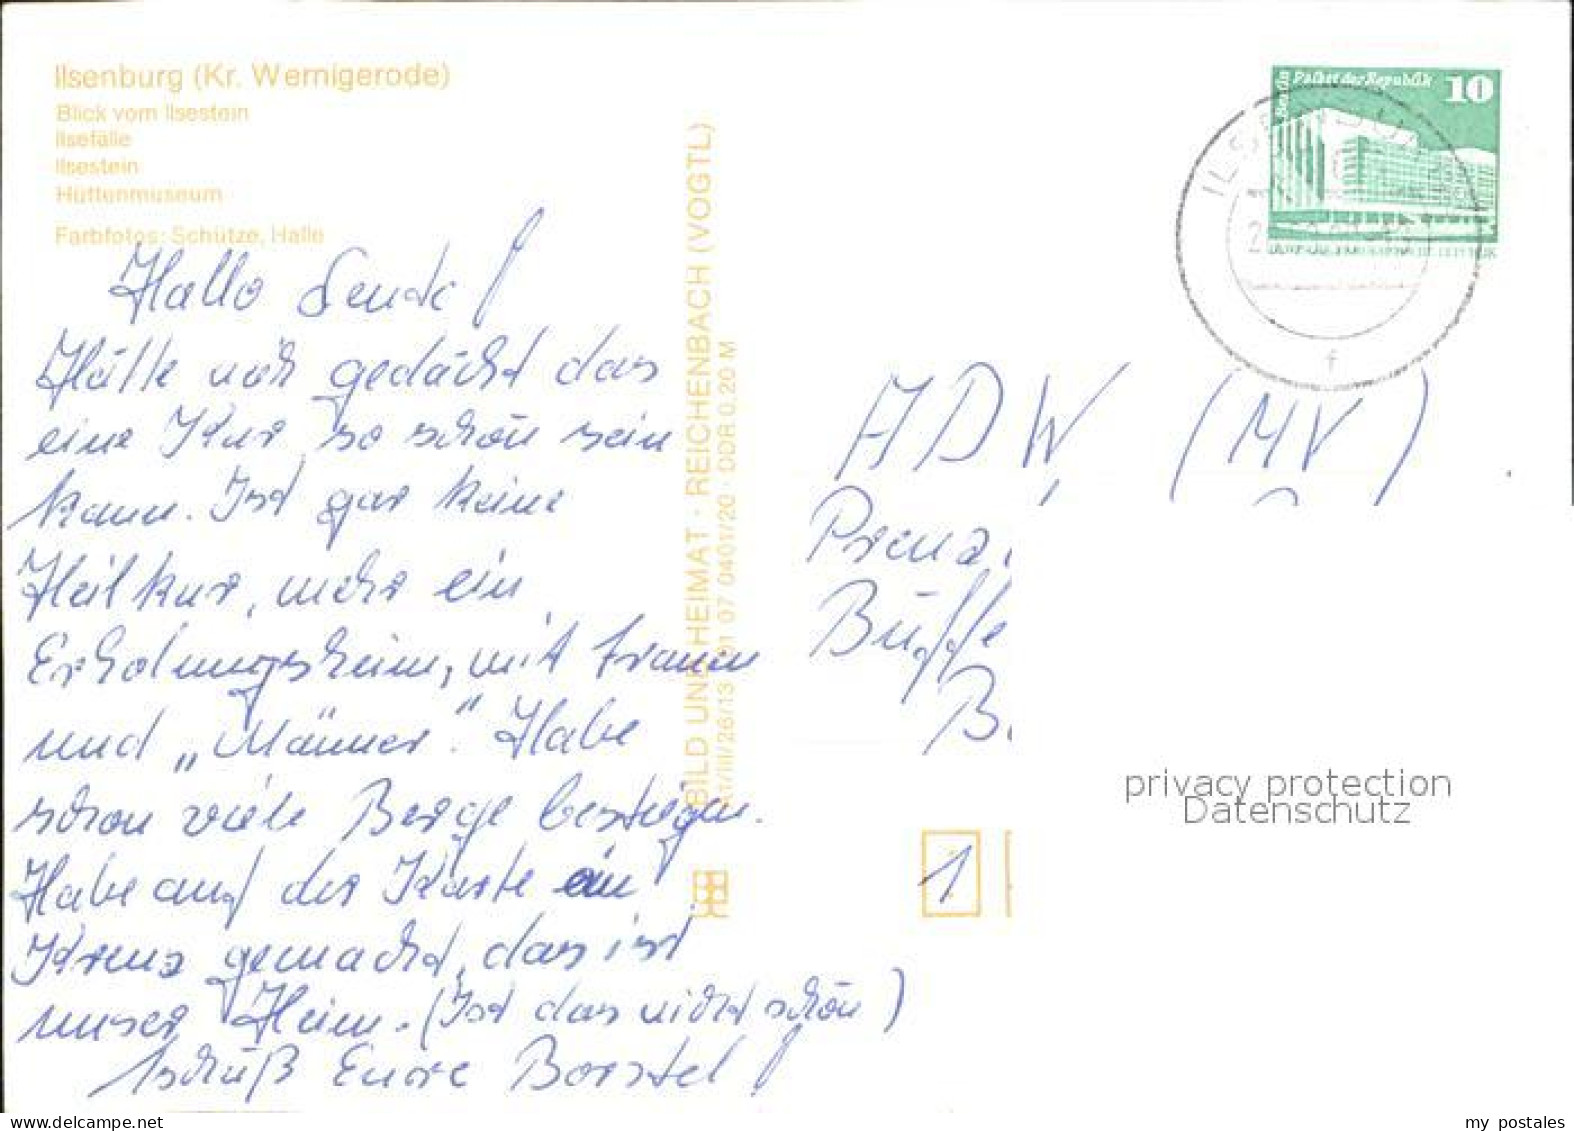 Ilsenburg (Kr. Wernigerode)
Blick vom Ilsestein
Ilsefälle
Ilsestein
Hüttenmuseum
Farbfotos: Schütze, Halle
Hallo Leute!
Hätte nie gedacht das
eine Kur so schön sein
kann. Ist gar keine
Heilkur, mehr ein
Erholungsheim, mit Frauen
und „Männer". Habe
schon viele Berge bestiegen.
Habe auf der Karte ein
Kreuz gemacht, das ist
unser Heim. (Ist das nicht schön)
Tschüß Eure Borstel!
BILD UND HEIMAT · REICHENBACH (VOGTL)
07 0401/20 · DDR 0,20 M
Berlin Palast der Republik 10
ILSENBURG
f
ADW (MV)
Prenz
Büffe
B
1
privacy protection
Datenschutz
delcampe.net
my postales